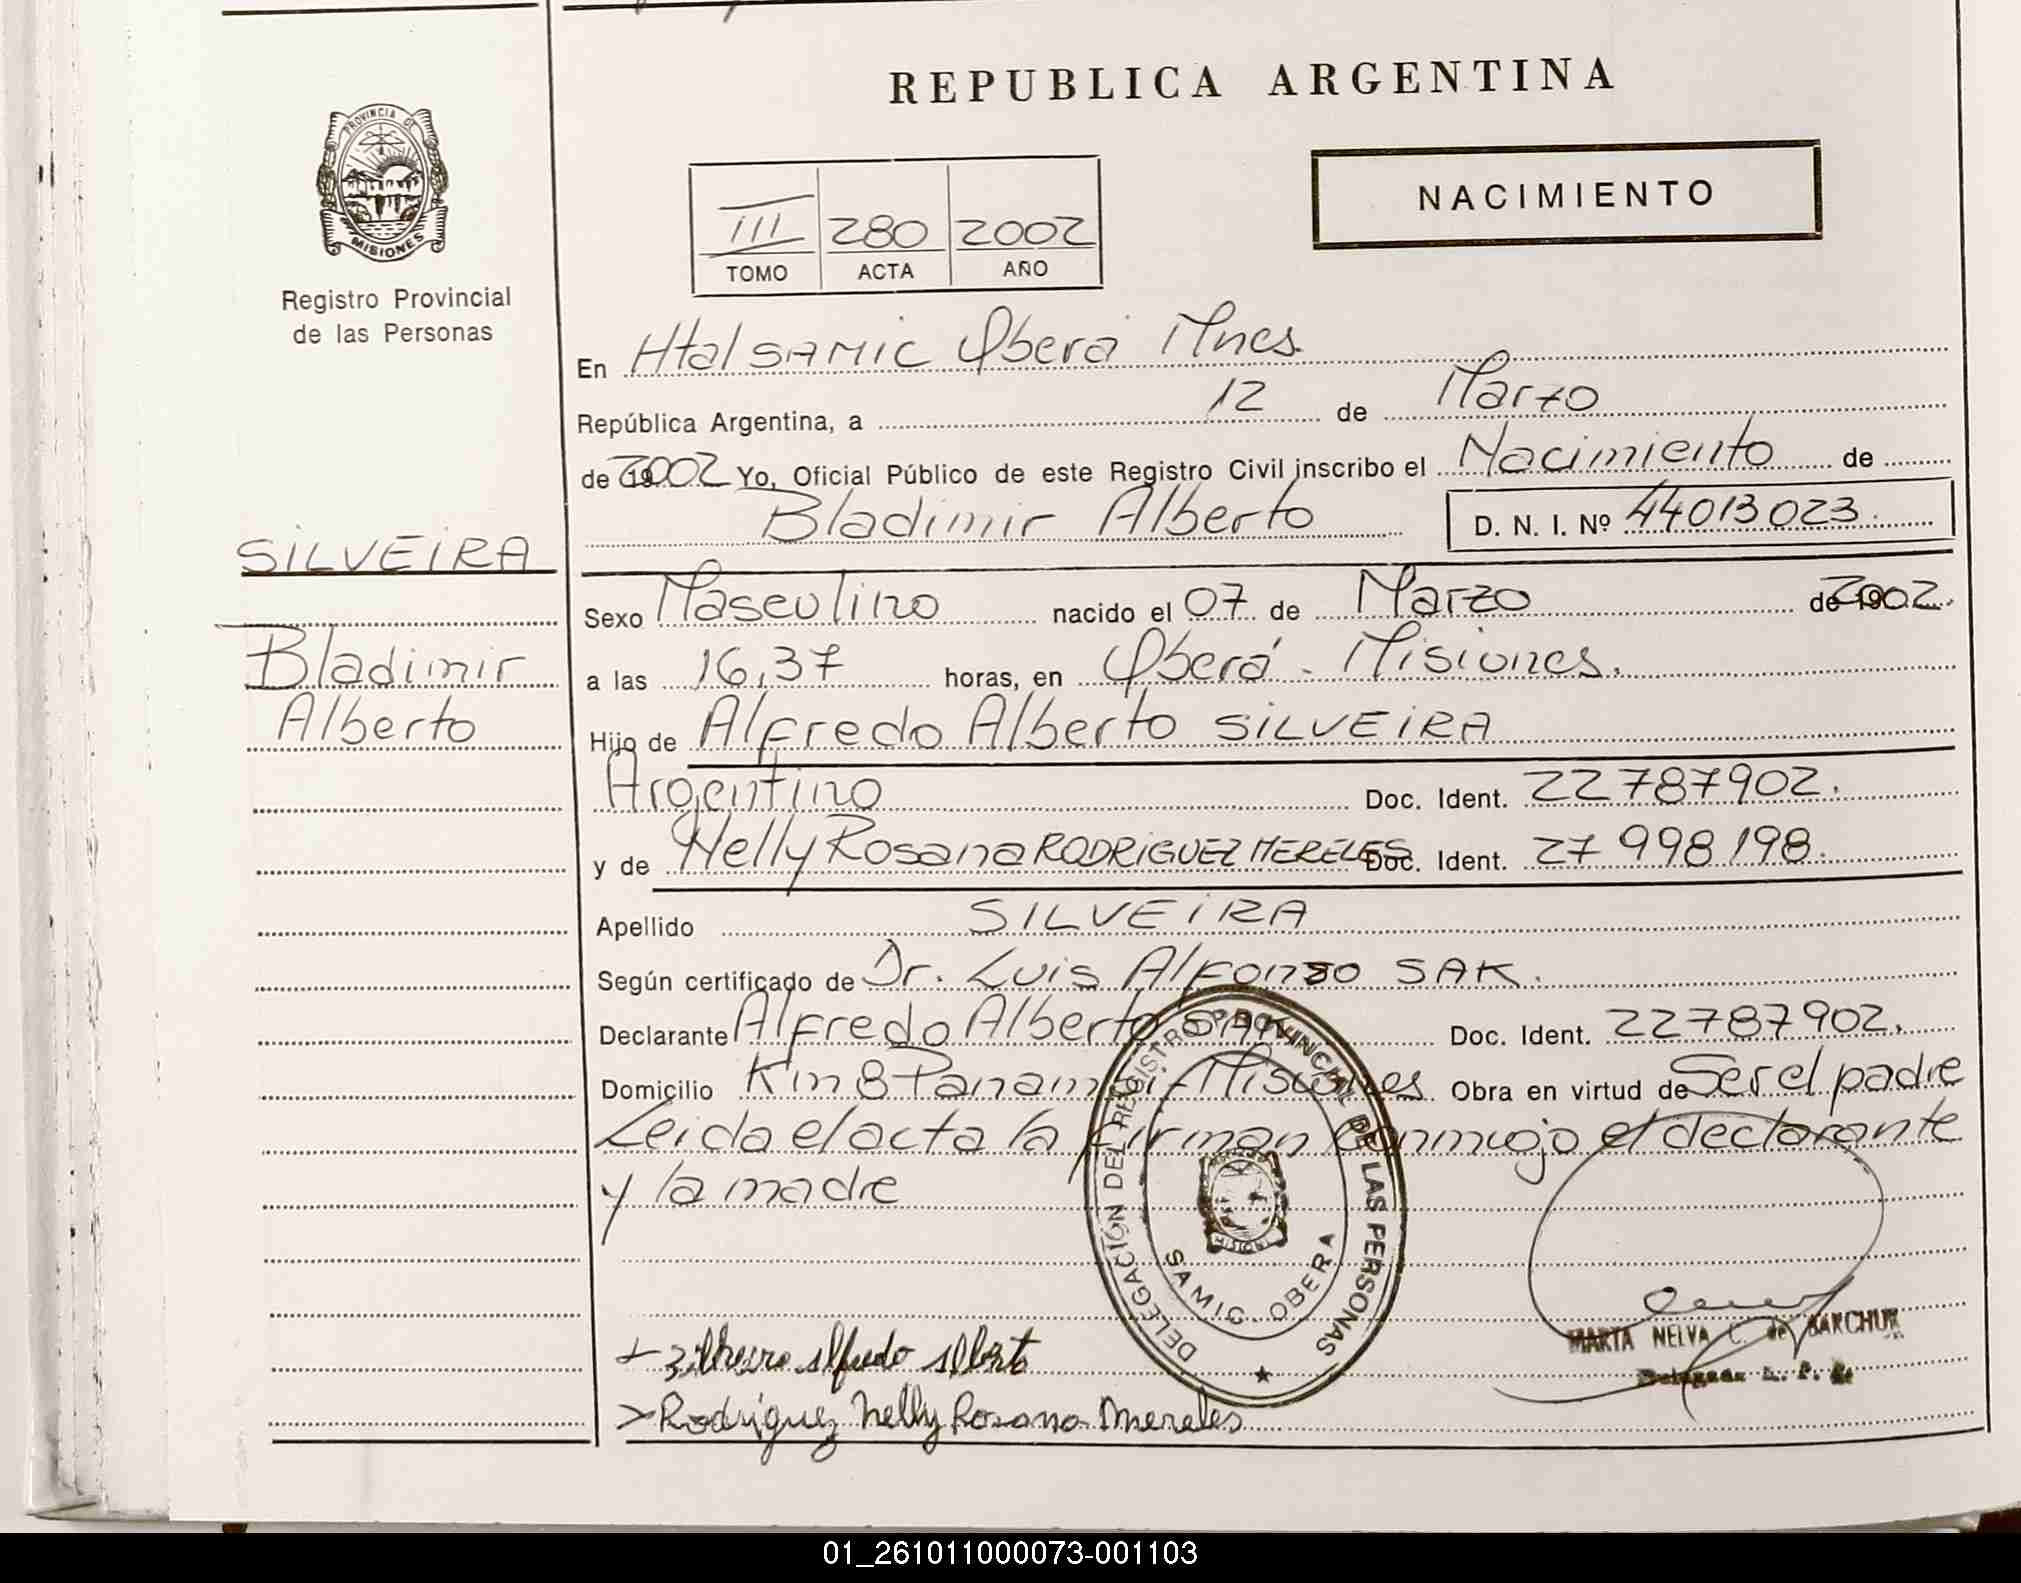 REPUBLICA ARGENTINA
PROVINCIA DE
MISIONES
Registro Provincial
de las Personas
NACIMIENTO
III 280 2002
TOMO ACTA AÑO
En Htal SAMIC Oberá Mnes.
República Argentina, a 12 de Marzo
de 2002 Yo, Oficial Público de este Registro Civil inscribo el Nacimiento de
Bladimir Alberto D. N. I. Nº 44013023.
SILVEIRA
Bladimir
Alberto
Sexo Masculino nacido el 07 de Marzo de 2002.
a las 16,37 horas, en Oberá - Misiones.
Hijo de Alfredo Alberto SILVEIRA
Argentino Doc. Ident. 22787902.
y de Nelly Rosana RODRIGUEZ MERELES Doc. Ident. 27998198.
Apellido SILVEIRA
Según certificado de Dr. Luis Alfonso SAK.
Declarante Alfredo Alberto SAK Doc. Ident. 22787902.
Domicilio Km 8 Panambí - Misiones Obra en virtud de Ser el padre
Leida el acta la firman conmigo el declarante
y la madre
DELEGACIÓN DEL REGISTRO PROVINCIAL DE LAS PERSONAS
SAMIC - OBERA
MARTA NELVA de BARCHUK
Alfredo Alberto
Rodriguez Nelly Rosana Mereles
01_261011000073-001103